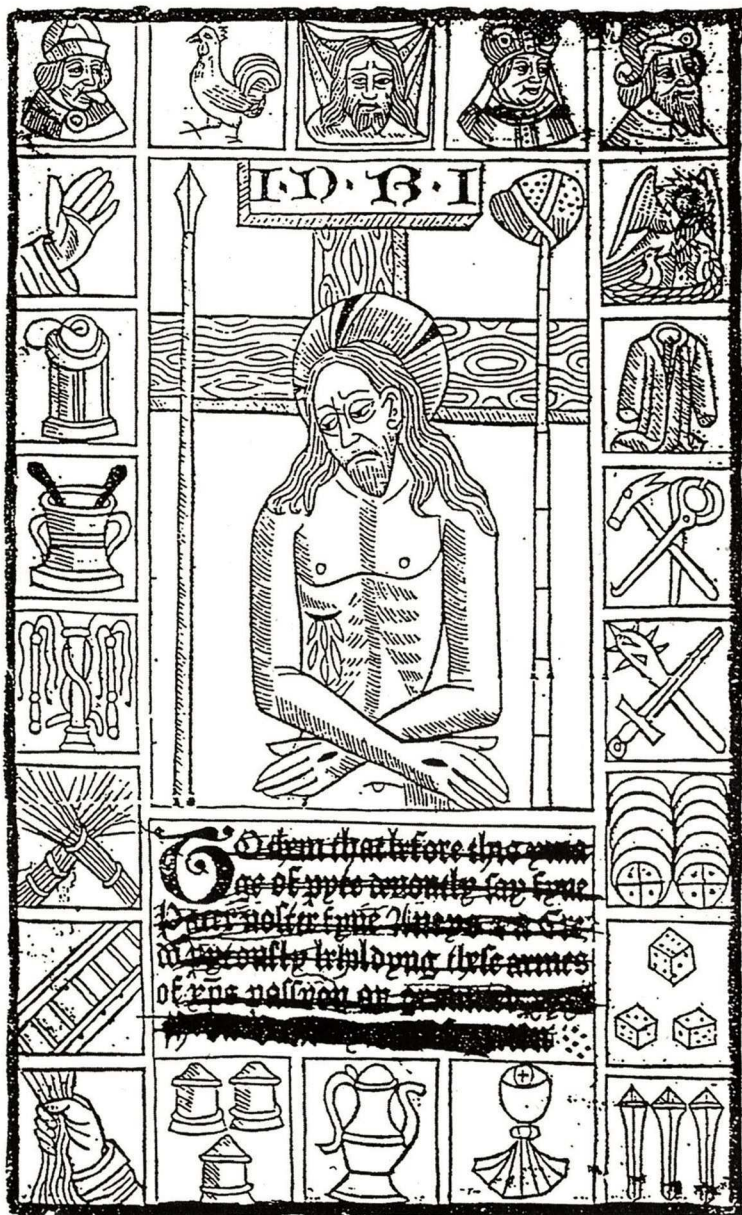 I·N·R·I
To them that before this yma
ge of pyte devoutly say fyue
Pater noster fyue Aueys & a Cre
do pytously beholdyng these armes
of xps passyon ar